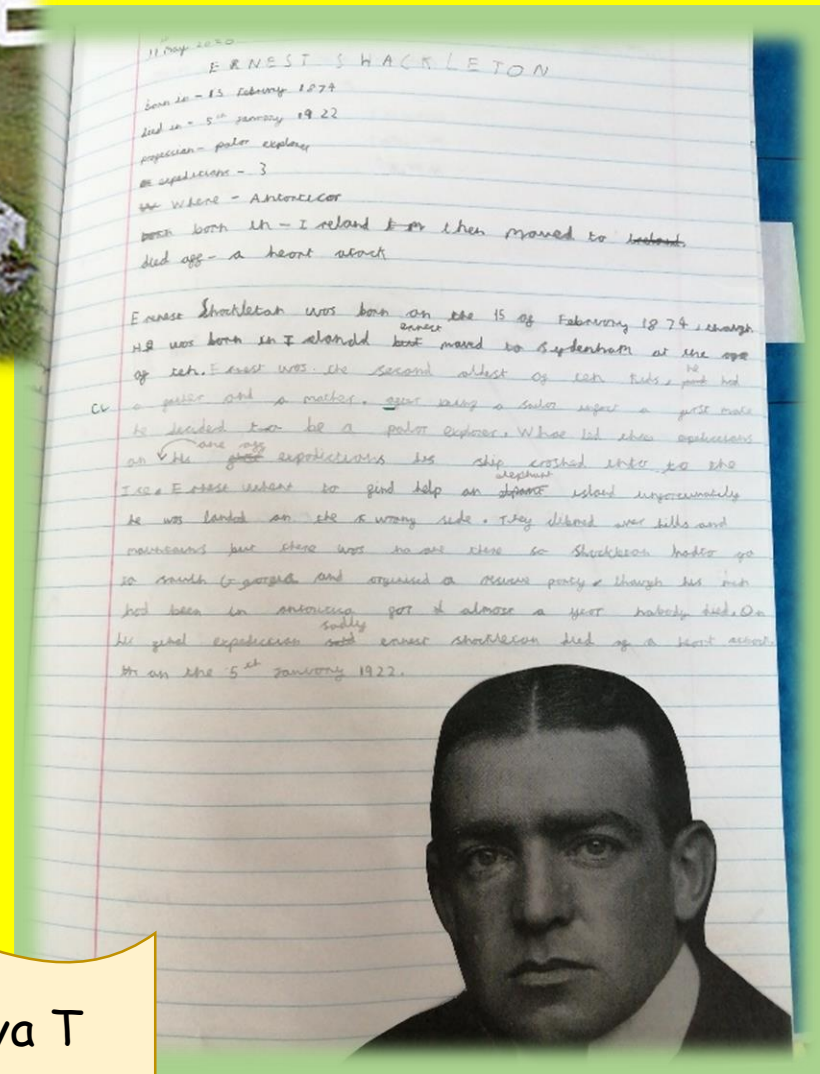 11 May 2020
ERNEST SHACKLETON
born in - 15 Februry 1874
died in - 5th January 1922
profession - polar explorer
expeditions - 3
Where - Antarctica
born in - Ireland then moved to
died off - a heart atack
Ernest Shackleton was born on the 15 of February 1874, though
He was born in Irelandd ernest moved to Sydenham at the age
of ten. Ernest was the second oldest of ten kids, he had
a father and a mother. after being a sailor a first mate
he decided to be a polar explorer. Whoe led three expeditions
on one off his expedictions his ship crashed into to the
Ice. Ernest to find help on elephant island unfortunately
he was landed on the wrong side. They climed over hills and
mountains but there was no one there so Shackleton had to go
to south Georgia and organised a party though his men
had been in for almost a year nobody died. On
his final expedition sadly ernest shackleton died of a heart
on the 5th January 1922.
va T